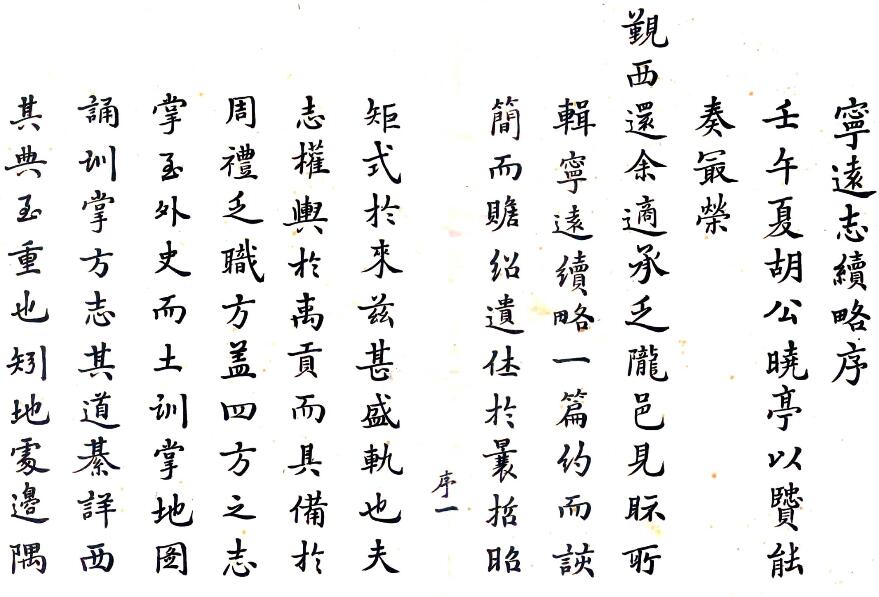 寧遠志續略序
壬午夏胡公曉亭以贒能
奏最榮
覲西還余適承乏隴邑見眎所
輯寧遠續略一篇約而該
簡而贍紹遺休於曩哲昭
序一
矩式於來茲甚盛軌也夫
志權輿於禹貢而具備於
周禮之職方盖四方之志
掌至外史而土訓掌地圖
誦訓掌方志其道綦詳而
其典至重也矧地處邊隅